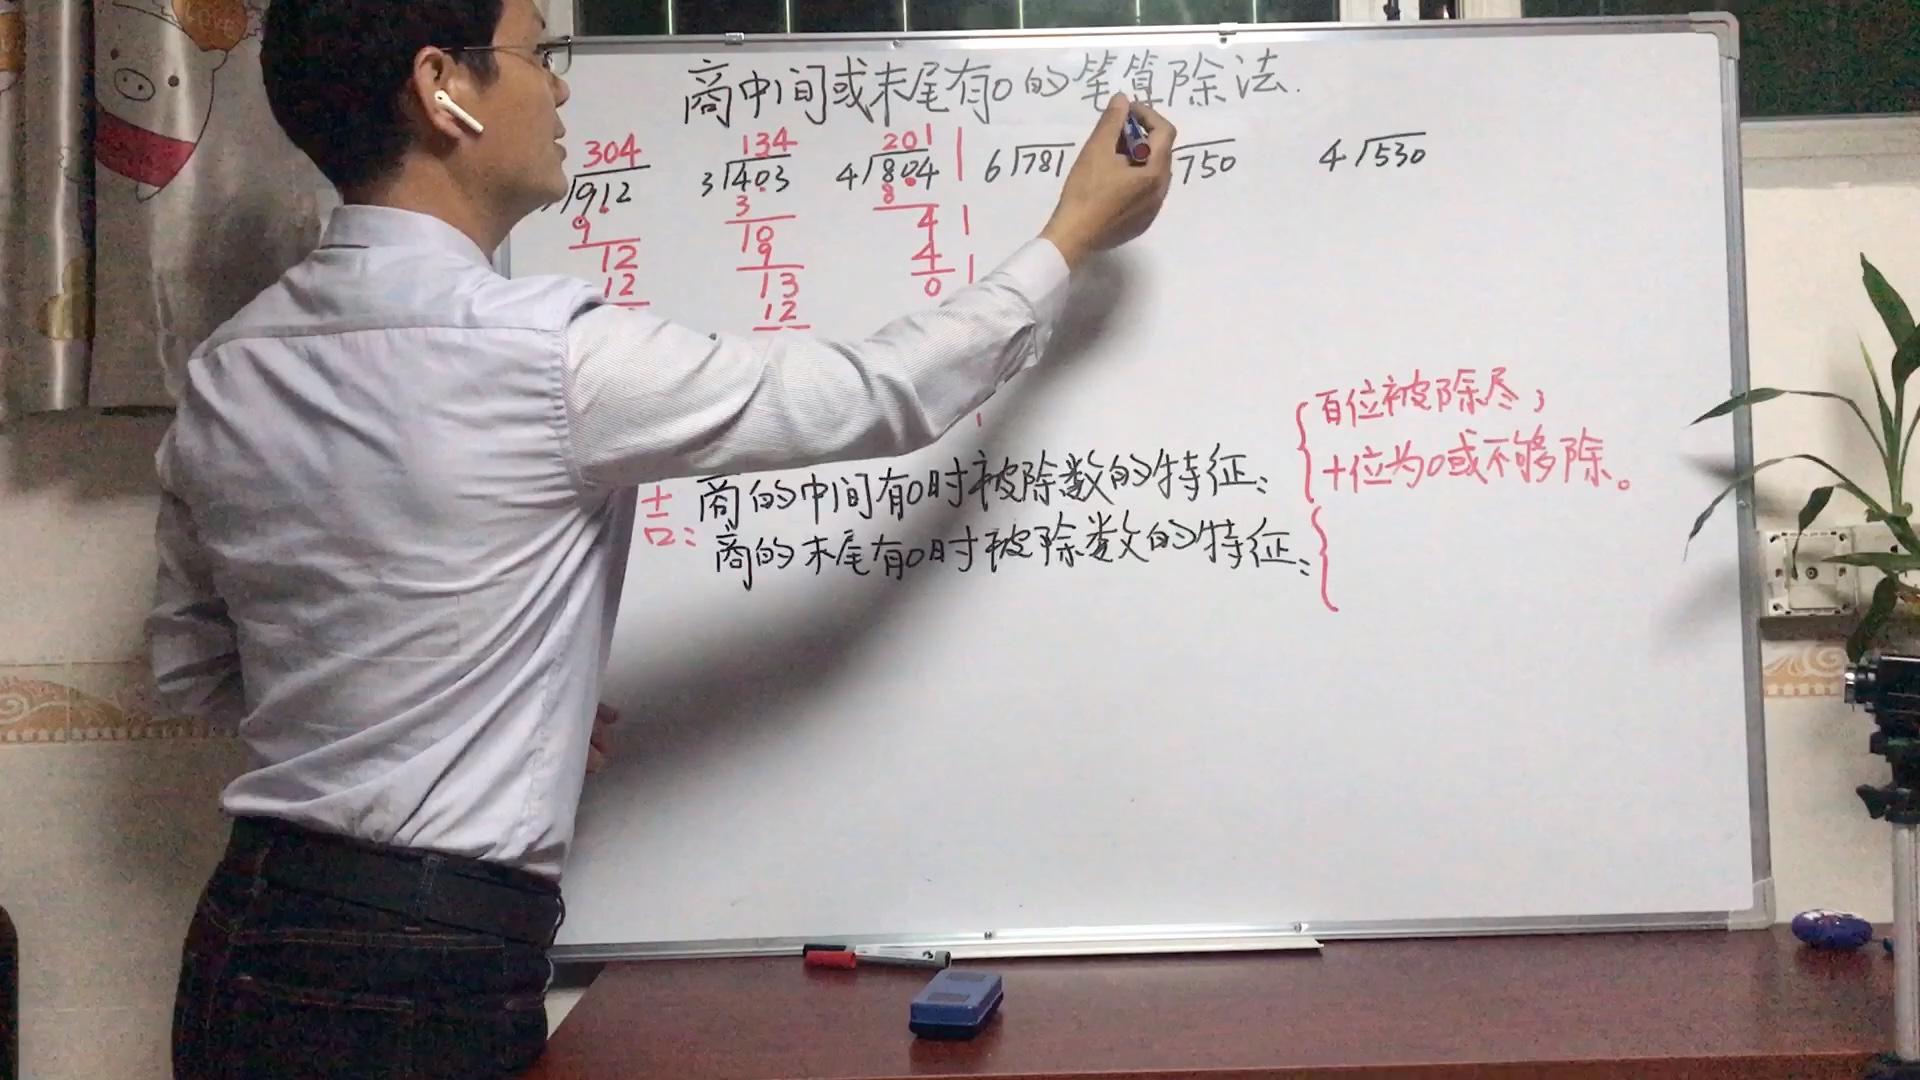 商中间或末尾有0的笔算除法.
304 134 201
912 3 403 4 804 6 781 750 4 530
9 3 8
12 10 4
12 9 4
13 0
12
百位被除尽;
十位为0或不够除。
商的中间有0时被除数的特征:
商的末尾有0时被除数的特征: